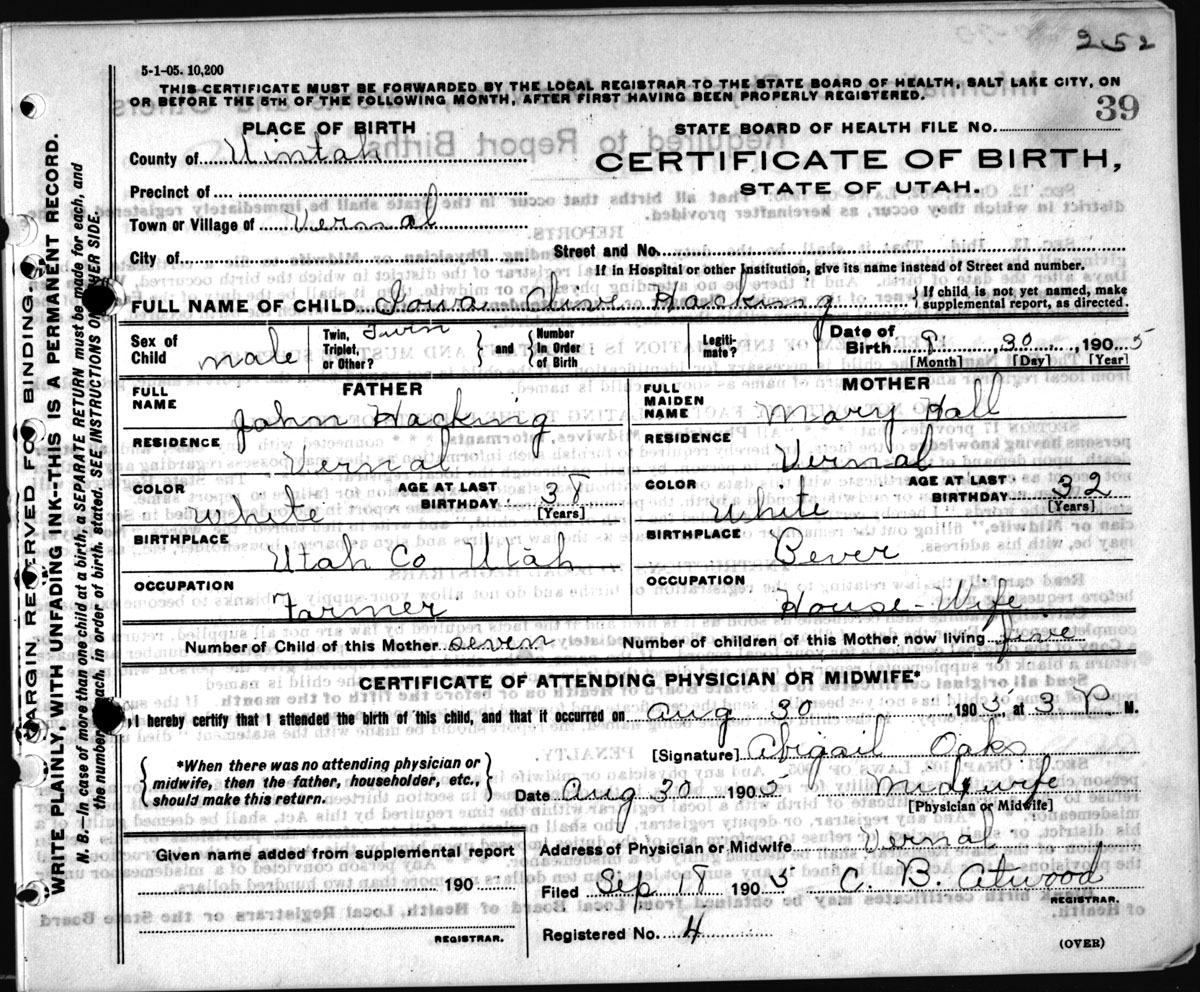 252
5-1-05. 10,200
THIS CERTIFICATE MUST BE FORWARDED BY THE LOCAL REGISTRAR TO THE STATE BOARD OF HEALTH, SALT LAKE CITY, ON
OR BEFORE THE 5TH OF THE FOLLOWING MONTH, AFTER FIRST HAVING BEEN PROPERLY REGISTERED.
39
PLACE OF BIRTH
STATE BOARD OF HEALTH FILE No.
County of Uintah
CERTIFICATE OF BIRTH,
STATE OF UTAH.
Precinct of
Town or Village of Vernal
City of
Street and No.
If in Hospital or other Institution, give its name instead of Street and number.
FULL NAME OF CHILD Iowa Hacking
{ If child is not yet named, make supplemental report, as directed.
Sex of Child male
Twin, Triplet, or Other? Twin } and { Number in Order of Birth
Legiti-mate?
Date of Birth 8 30, 1905
[Month] [Day] [Year]
FATHER
FULL NAME John Hacking
RESIDENCE Vernal
COLOR White
AGE AT LAST BIRTHDAY 38
[Years]
BIRTHPLACE Utah Co Utah
OCCUPATION Farmer
MOTHER
FULL MAIDEN NAME Mary Hall
RESIDENCE Vernal
COLOR White
AGE AT LAST BIRTHDAY 32
[Years]
BIRTHPLACE Bever
OCCUPATION House-Wife
Number of Child of this Mother seven
Number of children of this Mother now living five
CERTIFICATE OF ATTENDING PHYSICIAN OR MIDWIFE*
I hereby certify that I attended the birth of this child, and that it occurred on Aug 30 1905, at 3 P M.
[Signature] Abigail Oaks
{ *When there was no attending physician or
midwife, then the father, householder, etc.,
should make this return. }
Date Aug 30 1905 Midwife
[Physician or Midwife]
Given name added from supplemental report
190
REGISTRAR.
Address of Physician or Midwife Vernal
Filed Sep 18 1905 C. B. Atwood
REGISTRAR.
Registered No. 4
(OVER)
MARGIN RESERVED FOR BINDING.
WRITE PLAINLY, WITH UNFADING INK--THIS IS A PERMANENT RECORD.
N. B.--In case of more than one child at a birth, a SEPARATE RETURN must be made for each, and
the number of each, in order of birth, stated. SEE INSTRUCTIONS ON OTHER SIDE.